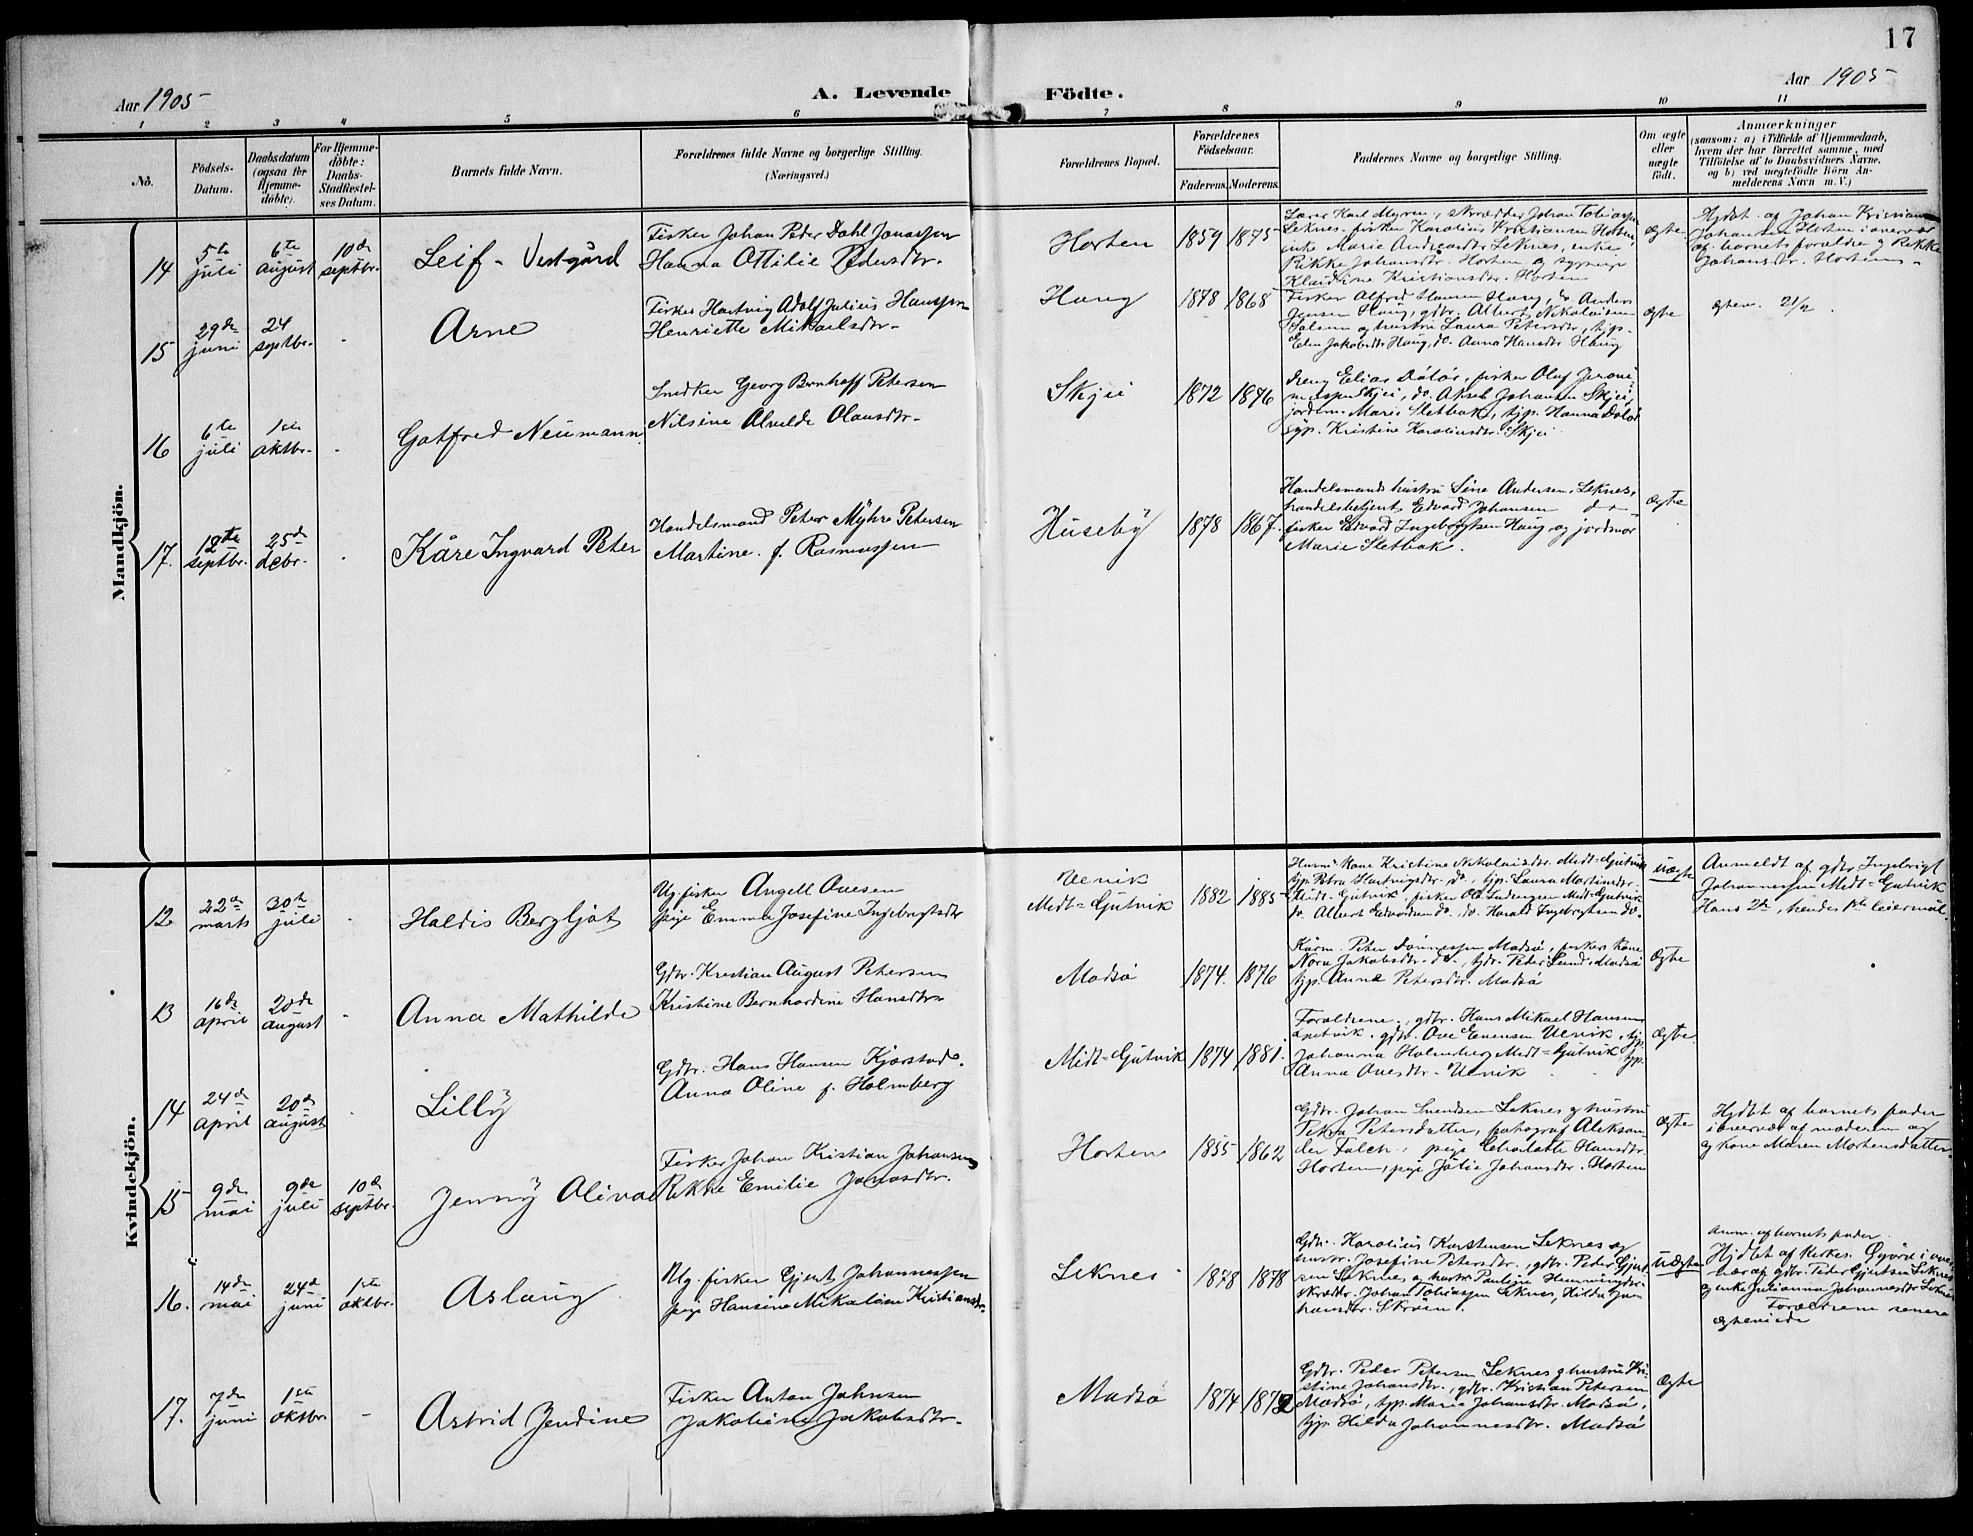 17
Aar 1905
A. Levende
Födte.
Aar 1905
1 2 3 4 5 6 7 8 9 10 11
No.
Födsels-
Datum.
Daabsdatum
(ogsaa for
Hjemme-
döbte).
For Hjemme-
döbte:
Daabs-
Stadfæstel-
ses Datum.
Barnets fulde Navn.
Forældrenes fulde Navne og borgerlige Stilling.
(Næringsvei.)
Forældrenes Bopæl.
Forældrenes
Födselsaar.
Faderens. Moderens.
Faddernes Navne og borgerlige Stilling.
Om ægte
eller
uægte
födt.
Anmærkninger
(saasom: a) i Tilfælde af Hjemmedaab,
hvem der har forrettet samme, med
Tilföielse af to Daabsvidners Navne,
og b) ved uægtefödte Börn An-
melderens Navn m. V.)
Mandkjön.
14
5te
juli
6te
august
10de
septbr.
Leif - Vestgård
Fisker Johan Peder Dahl Jonassen
Hanna Ottilie Pedersdtr.
Horten
1859 1875
Lærer Karl Myren, skrædder Johan Tobiassen
Leknes, fisker Karolius Kristiansen Horten,
enke Marie Andreasdtr. Leknes, enke
Rikke Johansdtr. Horten og sypige
Klaudine Kristiansdtr. Horten
ægte
Hjdbt. af Johan Kristian
Johansen Horten i overvær
af barnets forældre g Rikke
Johansdtr. Horten.
15
29de
juni
24
septbr.
-
Arne
Fisker Hartvig Adolf Julius Hanssen
Henriette Mikaelsdtr.
Haug
1878 1868
Fisker Alfred Hansen Haug, do. Anders
Jensen Haug, gdbr. Albert Nikolaisen
Salsen og hustru Laura Petersdtr, tjp.
Elen Jakobsdtr Haug, do. Anna Hansdtr Haug
ægte
16
6te
juli
1ste
oktbr.
-
Gotfred Neumann.
Snedker Georg Bernhoff Petersen
Nilsine Alvilde Olausdtr.
Skjei
1872 1876
dreng Elias Dålös, fisker Oluf Jeroni-
mussen Skjei, do. Aksel Johansen Skjei,
jordem. Marie Sletbak, tjp. Hanna Dålös
syp. Kristine Karoliusdtr. Skjei
17.
12te
septbr.
25de
debr.
-
Kåre Ingvard Peter
Handelsmand Peter Myhre Petersen
Martine f. Rasmussen
Huseby
1878 1867.
Handelsmands hustru Sine Andersen, Leknes,
handelsbetjent Edvard Johansen do
fisker Edvard Ingebrigtsen Haug og jordmor
Marie Sletbak.
ægte
Kvindekjön.
12
22de
marts
30te
juli
-
Haldis Bergljot
Ug. fisker Angell Ovesen
pige Emma Josefine Ingebrigtsdtr
Ulvik
Midt-Gutvik
1882 1885
Husm's kone Kristine Nikolaisdtr. Midt-Gutvik
tjp. Petra Hartvigsdtr. do, tjp. Laura Martinsdtr.
Midt-Gutvik fisker Ole Ludvigsen Midt-Gutvik
do Albert Edvardsen do, do. Harald Ingebrigtsen do.
Uægte
Anmeldt af gdbr. Ingebrigt
Johannessen Midt-Gutvik
Hans 2de, hendes 1ste leiermål.
13
16de
april
20de
august
-
Anna Mathilde
Gdbr. Kristian August Petersen
Kristine Bernhardine Hansdtr.
Madsö
1874. 1876
Kårm. Peter Jonnessen Madsö, fiskers kone
Nora Jakobsdtr. do, tjdr. Peder Lund, Madsö
tjp. Anna Petersdtr. Madsö
ægte
14
24de
april
20de
august
-
Lilly
Gdbr. Hans Hansen Kjærstad.
Anna Oline f. Holmberg
Midt-Gutvik
1874 1881.
Forældrene, gdbr. Hans Mikael Hansen
gdbr. Ove Evensen Ulvik, tjp.
Johanna Holmberg Midt-Gutvik, tjp.
Anna Ovesdtr. Ulvik
ægte
15
9de
mai
9de
juli
10de
septbr.
Jenny Oliva
Fisker Johan Kristian Johansen
Rikke Emilie Jonasdtr.
Horten
1855 1862
Gdbr. Johan Svendsen Leknes g hustru
Petra Petersdatter, fotograf Aleksan-
der Falch, pige Charlotte Hansdtr.
Horten, pige Julie Johansdtr. Horten
ægte
Hjdbt af barnets fader
i overvær af moderen og
g kone Maren Mortensdatter.
16.
14de
mai
24de
juni
1ste
oktbr.
Aslaug
Ug. fisker Gjert Johannessen
pige Hansine Mikaline Kristiansdtr.
Leknes
1878 1878
Gdbr. Karolius Karstensen Leknes og
hustr. Josefine Petersdtr., gdbr. Peder Gjert-
sen Leknes og hustr. Pauline Henningsdtr.
skræddr. Johan Tobiassen Leknes, Hilda Jo-
hansdtr. Skroen.
Uægte
Anm. af barnets fader.
Hjdbt af kirkes. Györd i over-
vær af gdbr. Peder Gjertsen Leknes
og enke Julianna Johannesdtr Leknes
Forældrene senere
ægteviede
17.
7de
juni
1ste
oktbr.
-
Astrid Jendine
Fisker Anton Johnsen
Jakobine Jakobsdtr.
Madsö
1874 1872
Gdbr. Peder Petersen Leknes g hustru Kri-
stine Johansdtr., gdbr. Kristian Petersen
Madsö, tjp. Marie Johansdtr. Madsö,
tjp. Hilda Johannesdtr. Madsö
ægte